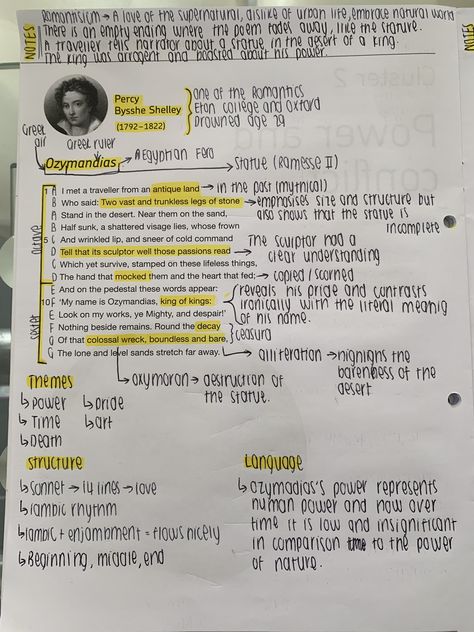 NOTES
Romanticism → A love of the supernatural, dislike of urban life, embrace natural world
There is an empty ending where the poem fades away, like the stature.
A traveller tells narrator about a statue in the desert of a king.
The king was arrogent and boasted about his power.
Percy
Bysshe Shelley
(1792–1822)
one of the Romantics
Eton college and Oxford
Drowned age 29
Greek air
Greek ruler
Ozymandias
→ Aegyptian Fero
→ statue (Ramesse II)
octave
sestet
1 A I met a traveller from an antique land → in the past (mythical)
B Who said: Two vast and trunkless legs of stone → emphasises size and structure but
A Stand in the desert. Near them on the sand, also shows that the statue is
B Half sunk, a shattered visage lies, whose frown incomplete
5 A And wrinkled lip, and sneer of cold command
C Tell that its sculptor well those passions read
The sculptor had a
clear understanding
D Which yet survive, stamped on these lifeless things,
D The hand that mocked them and the heart that fed; → copied/scorned
E And on the pedestal these words appear:
10 F ‘My name is Ozymandias, king of kings:
E Look on my works, ye Mighty, and despair!’
reveals his pride and contrasts
ironically with the literal meanig
of his name.
F Nothing beside remains. Round the decay
G Of that colossal wreck, boundless and bare,
ceasura
G The lone and level sands stretch far away.
→ alliteration → highlighs the
bareness of the
desert
→ oxymoron → destruction of
the statue.
Themes
↳ power ↳ pride
↳ Time ↳ art
↳ Death
Structure
↳ sonnet → 14 lines → love
↳ iambic rhythm
↳ iambic + enjambment = flows nicely
↳ Beginning, middle, end
Language
↳ ozymadias's power represents
human power and now over
time it is low and insignificant
in comparison to the power
of nature.